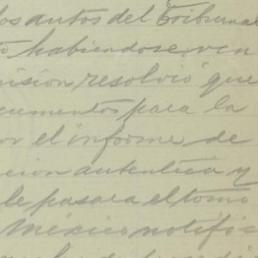 los autos del Tribunal
habiendose, ven
ision resolvió que
cumentos para la
or el informe de
cion autentica y
le pasara el tomo
Mexico notific